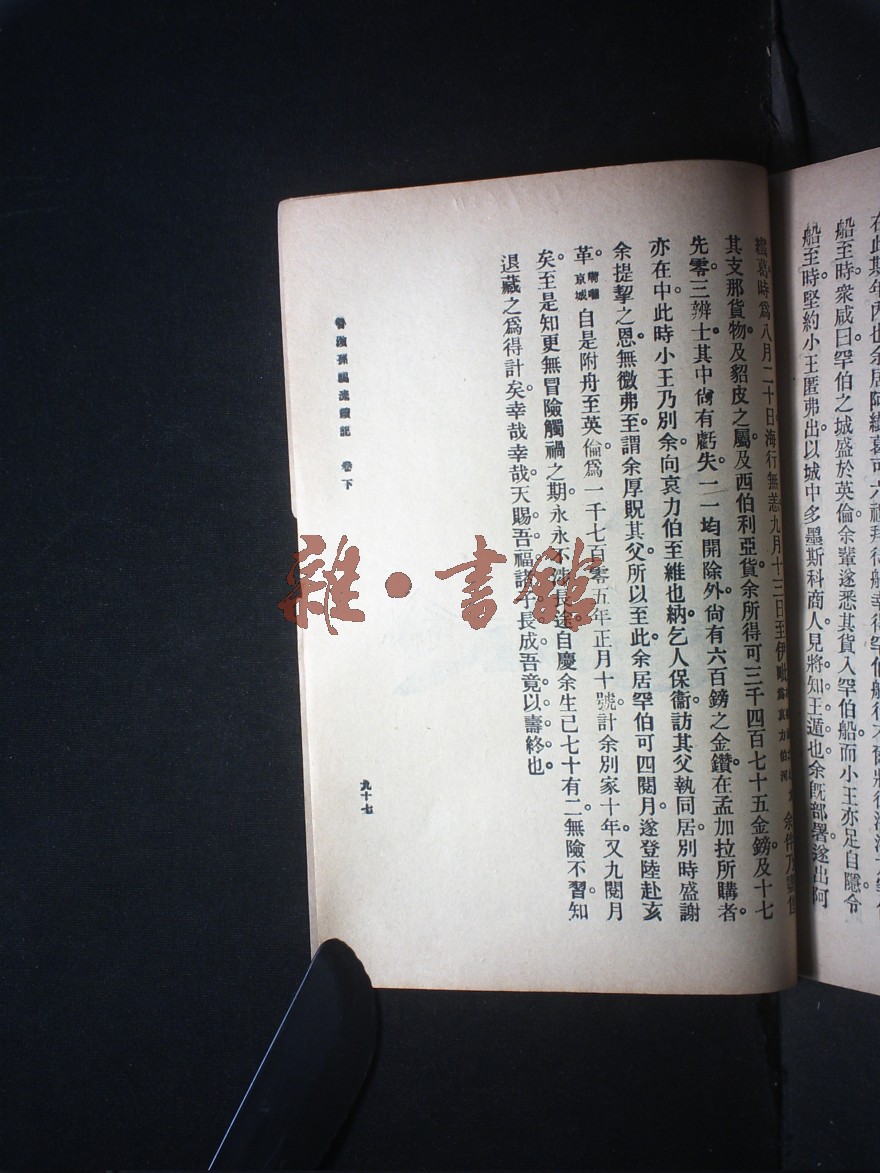 在此期年內也余居阿
船至時衆咸曰罕伯之城盛於英倫余輩遂悉其貨入罕伯船而小王亦足自隱令
船至時堅約小王匿弗出以城中多墨斯科商人見將知王遁也余旣部署遂出阿
葛時爲八月二十日海行無恙九月十三日至伊
其支那貨物及貂皮之屬及西伯利亞貨余所得可三千四百七十五金鎊及十七
先零三辨士其中尙有虧失一一均開除外尙有六百鎊之金鑽在孟加拉所購者
亦在中此時小王乃別余向哀力伯至維也納乞人保衞訪其父執同居別時盛謝
余提挈之恩無微弗至謂余厚貺其父所以至此余居罕伯可四閱月遂登陸赴亥
革 京城 自是附舟至英倫爲一千七百零五年正月十號計余別家十年又九閱月
矣至是知更無冒險觸禍之期永永不涉長途自慶余生已七十有二無險不習知
退藏之爲得計矣幸哉幸哉天賜吾福諸子長成吾竟以壽終也
魯濱孫飄流續記 卷下
九十七
雜·書館